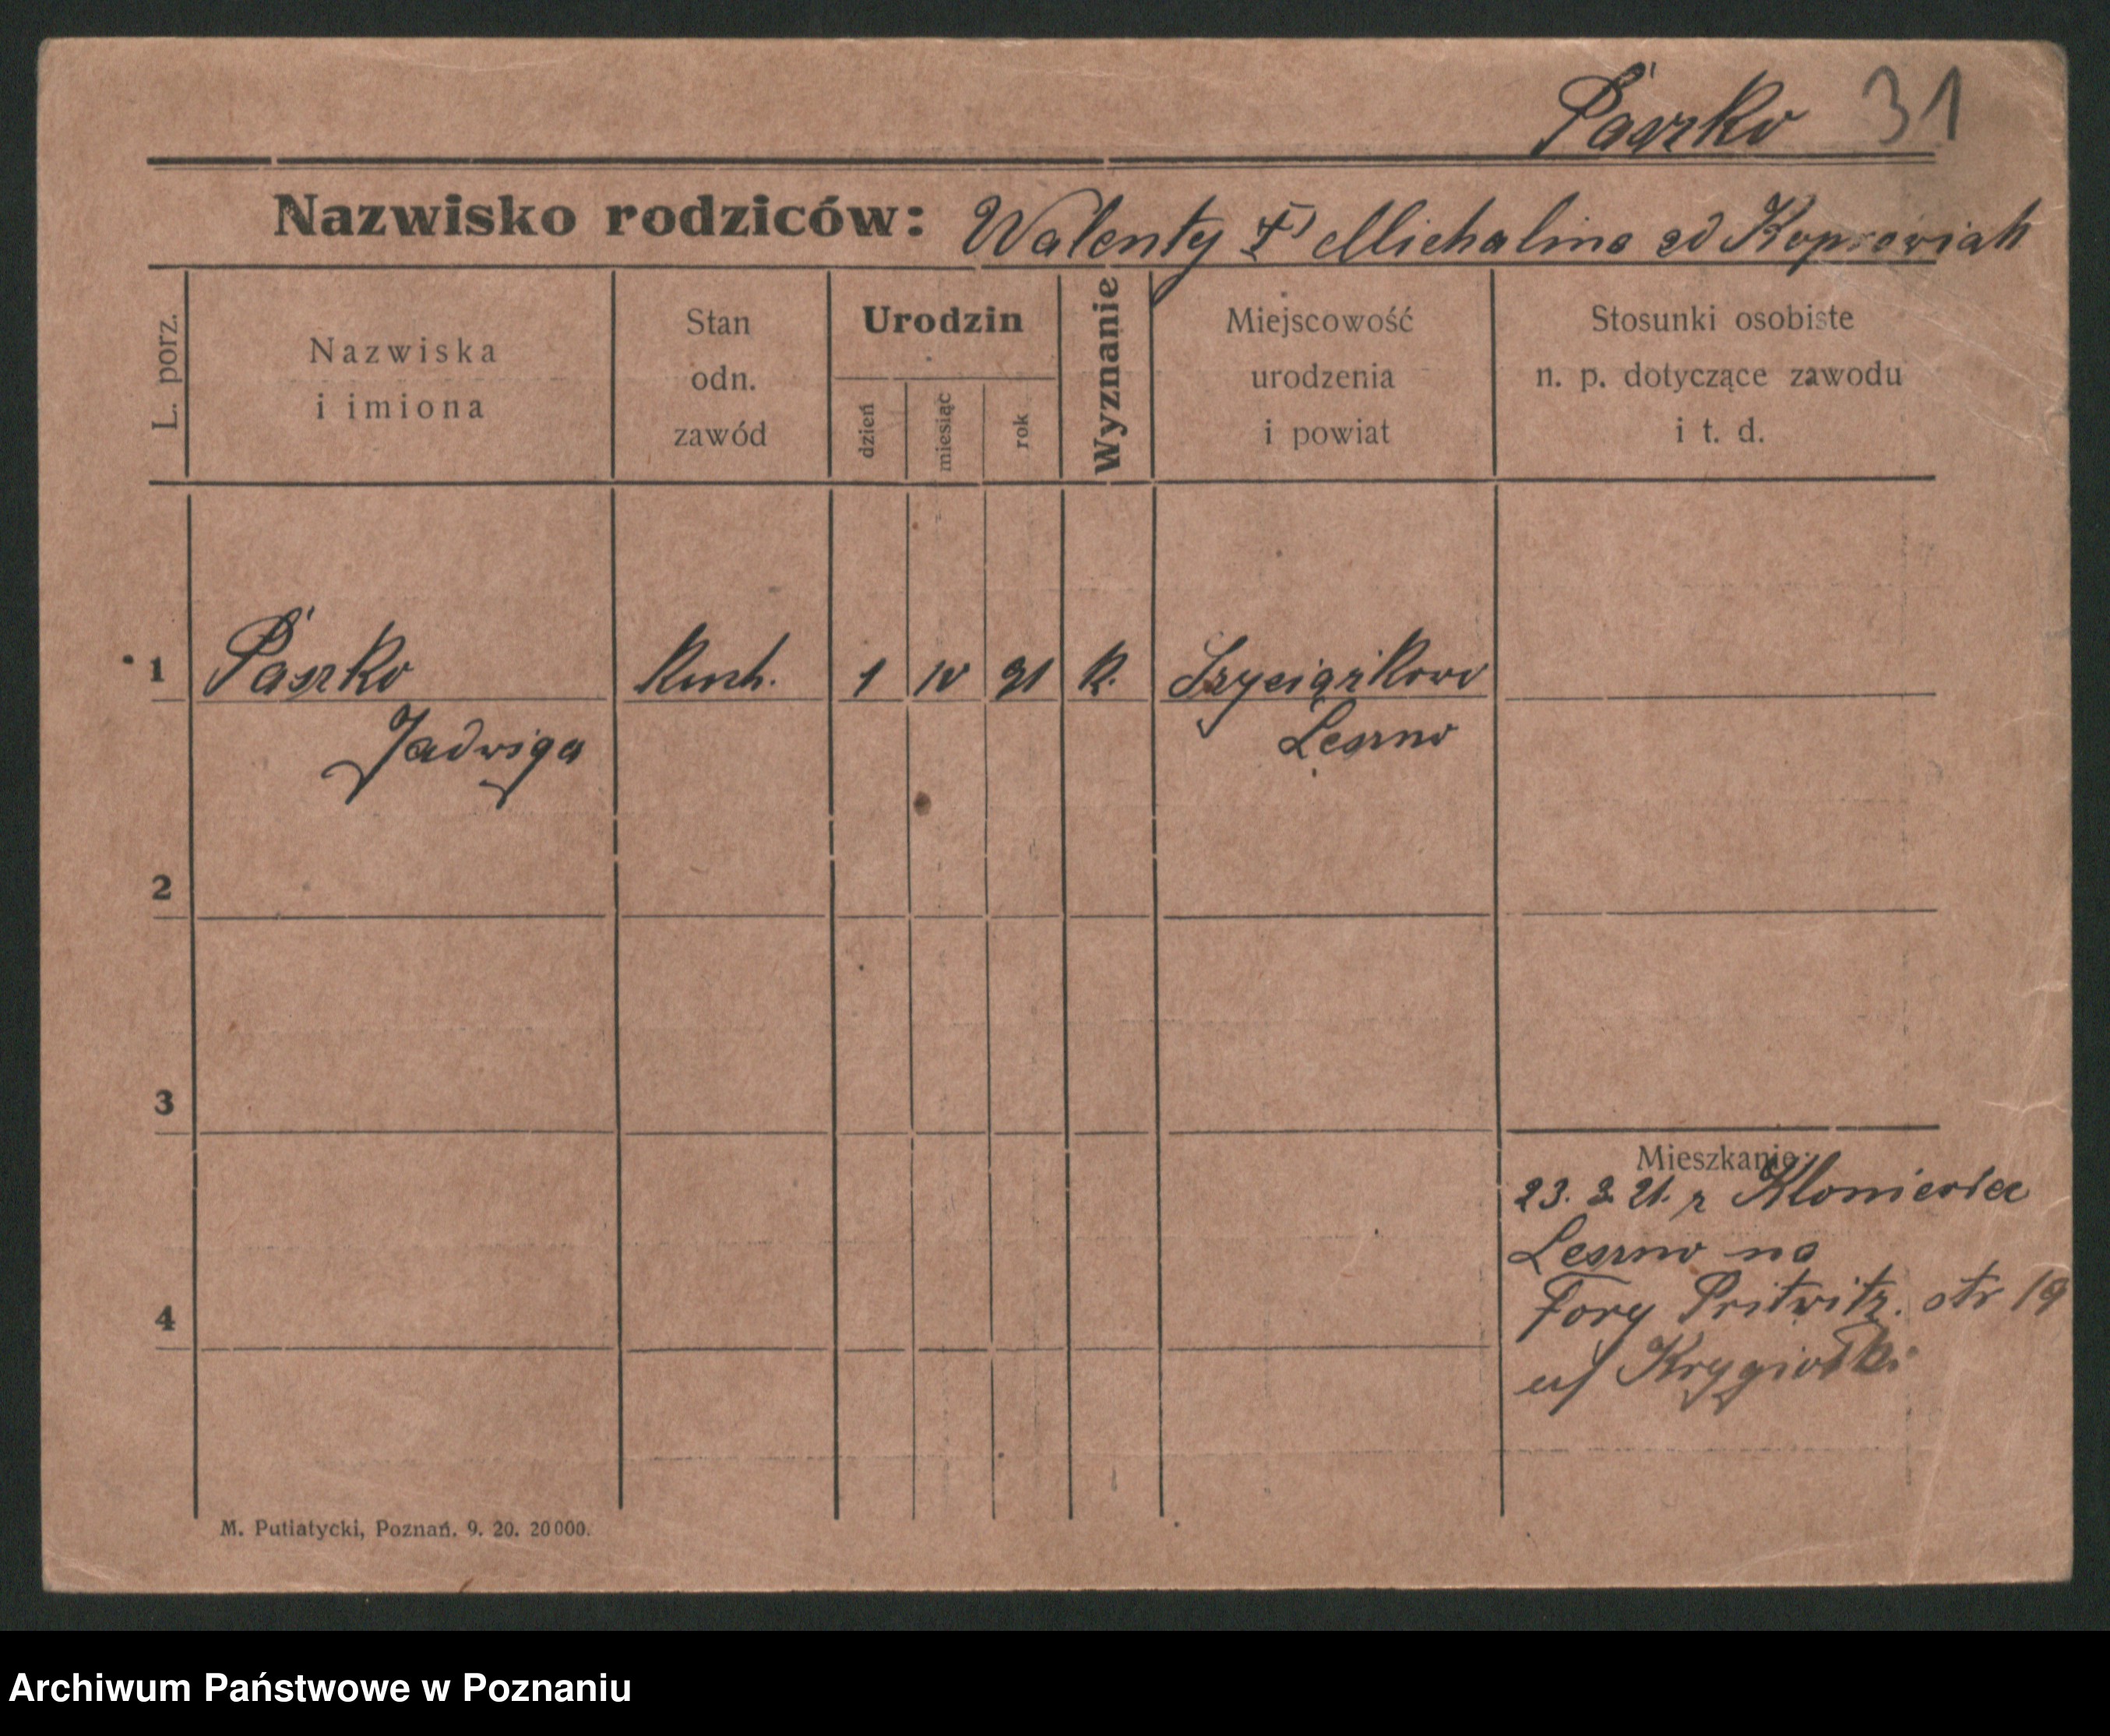 Paszko 31
Nazwisko rodziców: Walenty + Michalina zd Koprowiak
L. porz.
Nazwiska
i imiona
Stan
odn.
zawód
Urodzin
dzień
miesiąc
rok
Wyznanie
Miejscowość
urodzenia
i powiat
Stosunki osobiste
n. p. dotyczące zawodu
i t. d.
1 Paszko Kuch. 1 IV 91 K.
Jadwiga Leszno
2
3
4
Mieszkanie:
23. 3. 21. z
Leszno na
Fory Pritwitz. str 19
u/
M. Putiatycki, Poznań. 9. 20. 20000.
Archiwum Państwowe w Poznaniu